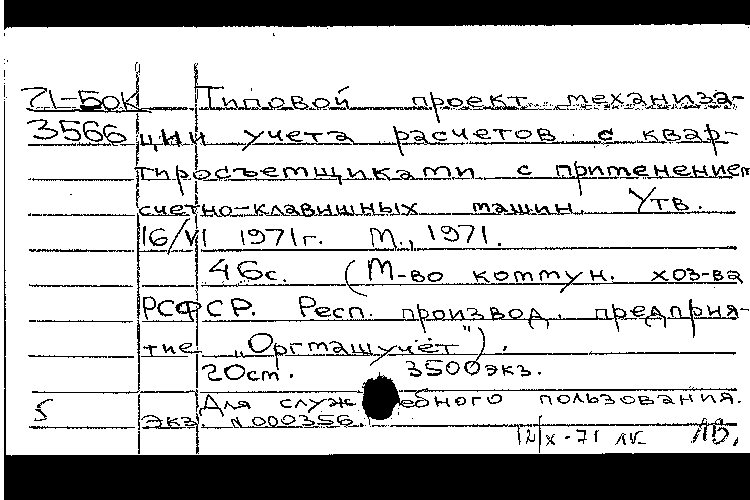 71-БОК Типовой проект механиза-
3566 ции учета расчетов с квар-
тиросъемщиками с применением
счетно-клавишных машин. Утв.
16/VI 1971г. М., 1971.
46с. (М-во коммун. хоз-ва
РСФСР. Респ. производ. предприя-
тие "Оргмашучёт").
20см. 3500экз.
Для служебного пользования.
5 экз. N 000356.
12/X-71 ЛВ.